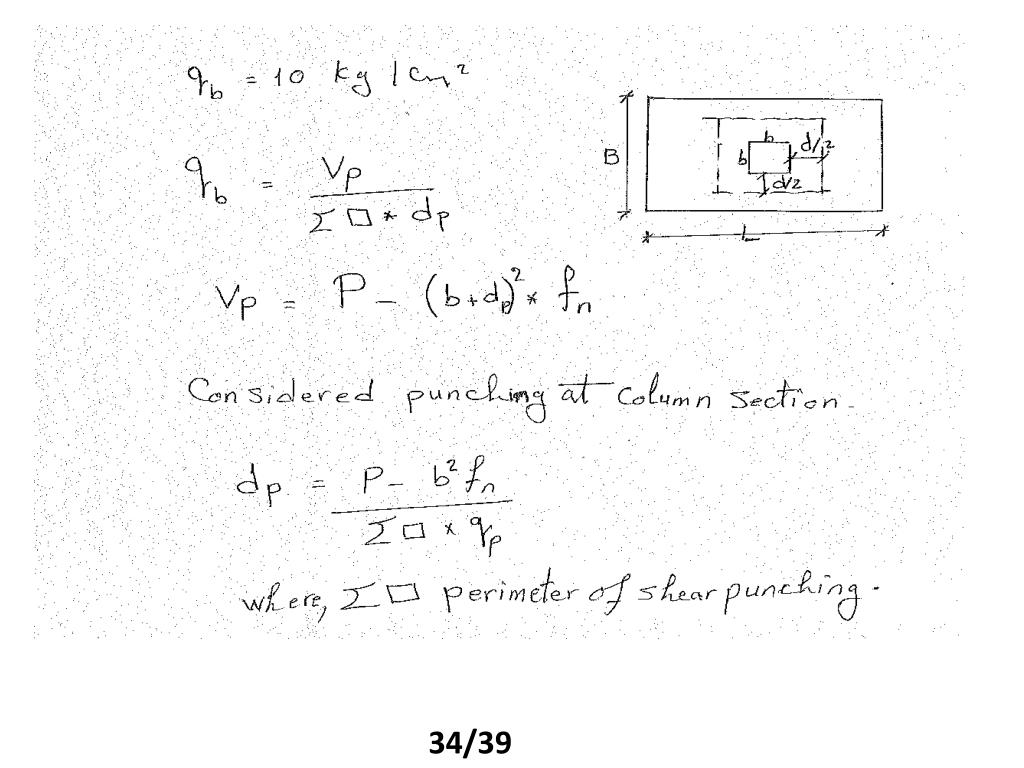 q_b = 10 kg/cm²
B
b
b
d/2
d/2
L
q_b = V_p / (Σ□ * d_p)
V_p = P - (b+d_p)² * f_n
Considered punching at column section.
d_p = (P - b² f_n) / (Σ□ * q_p)
where, Σ□ perimeter of shear punching.
34/39